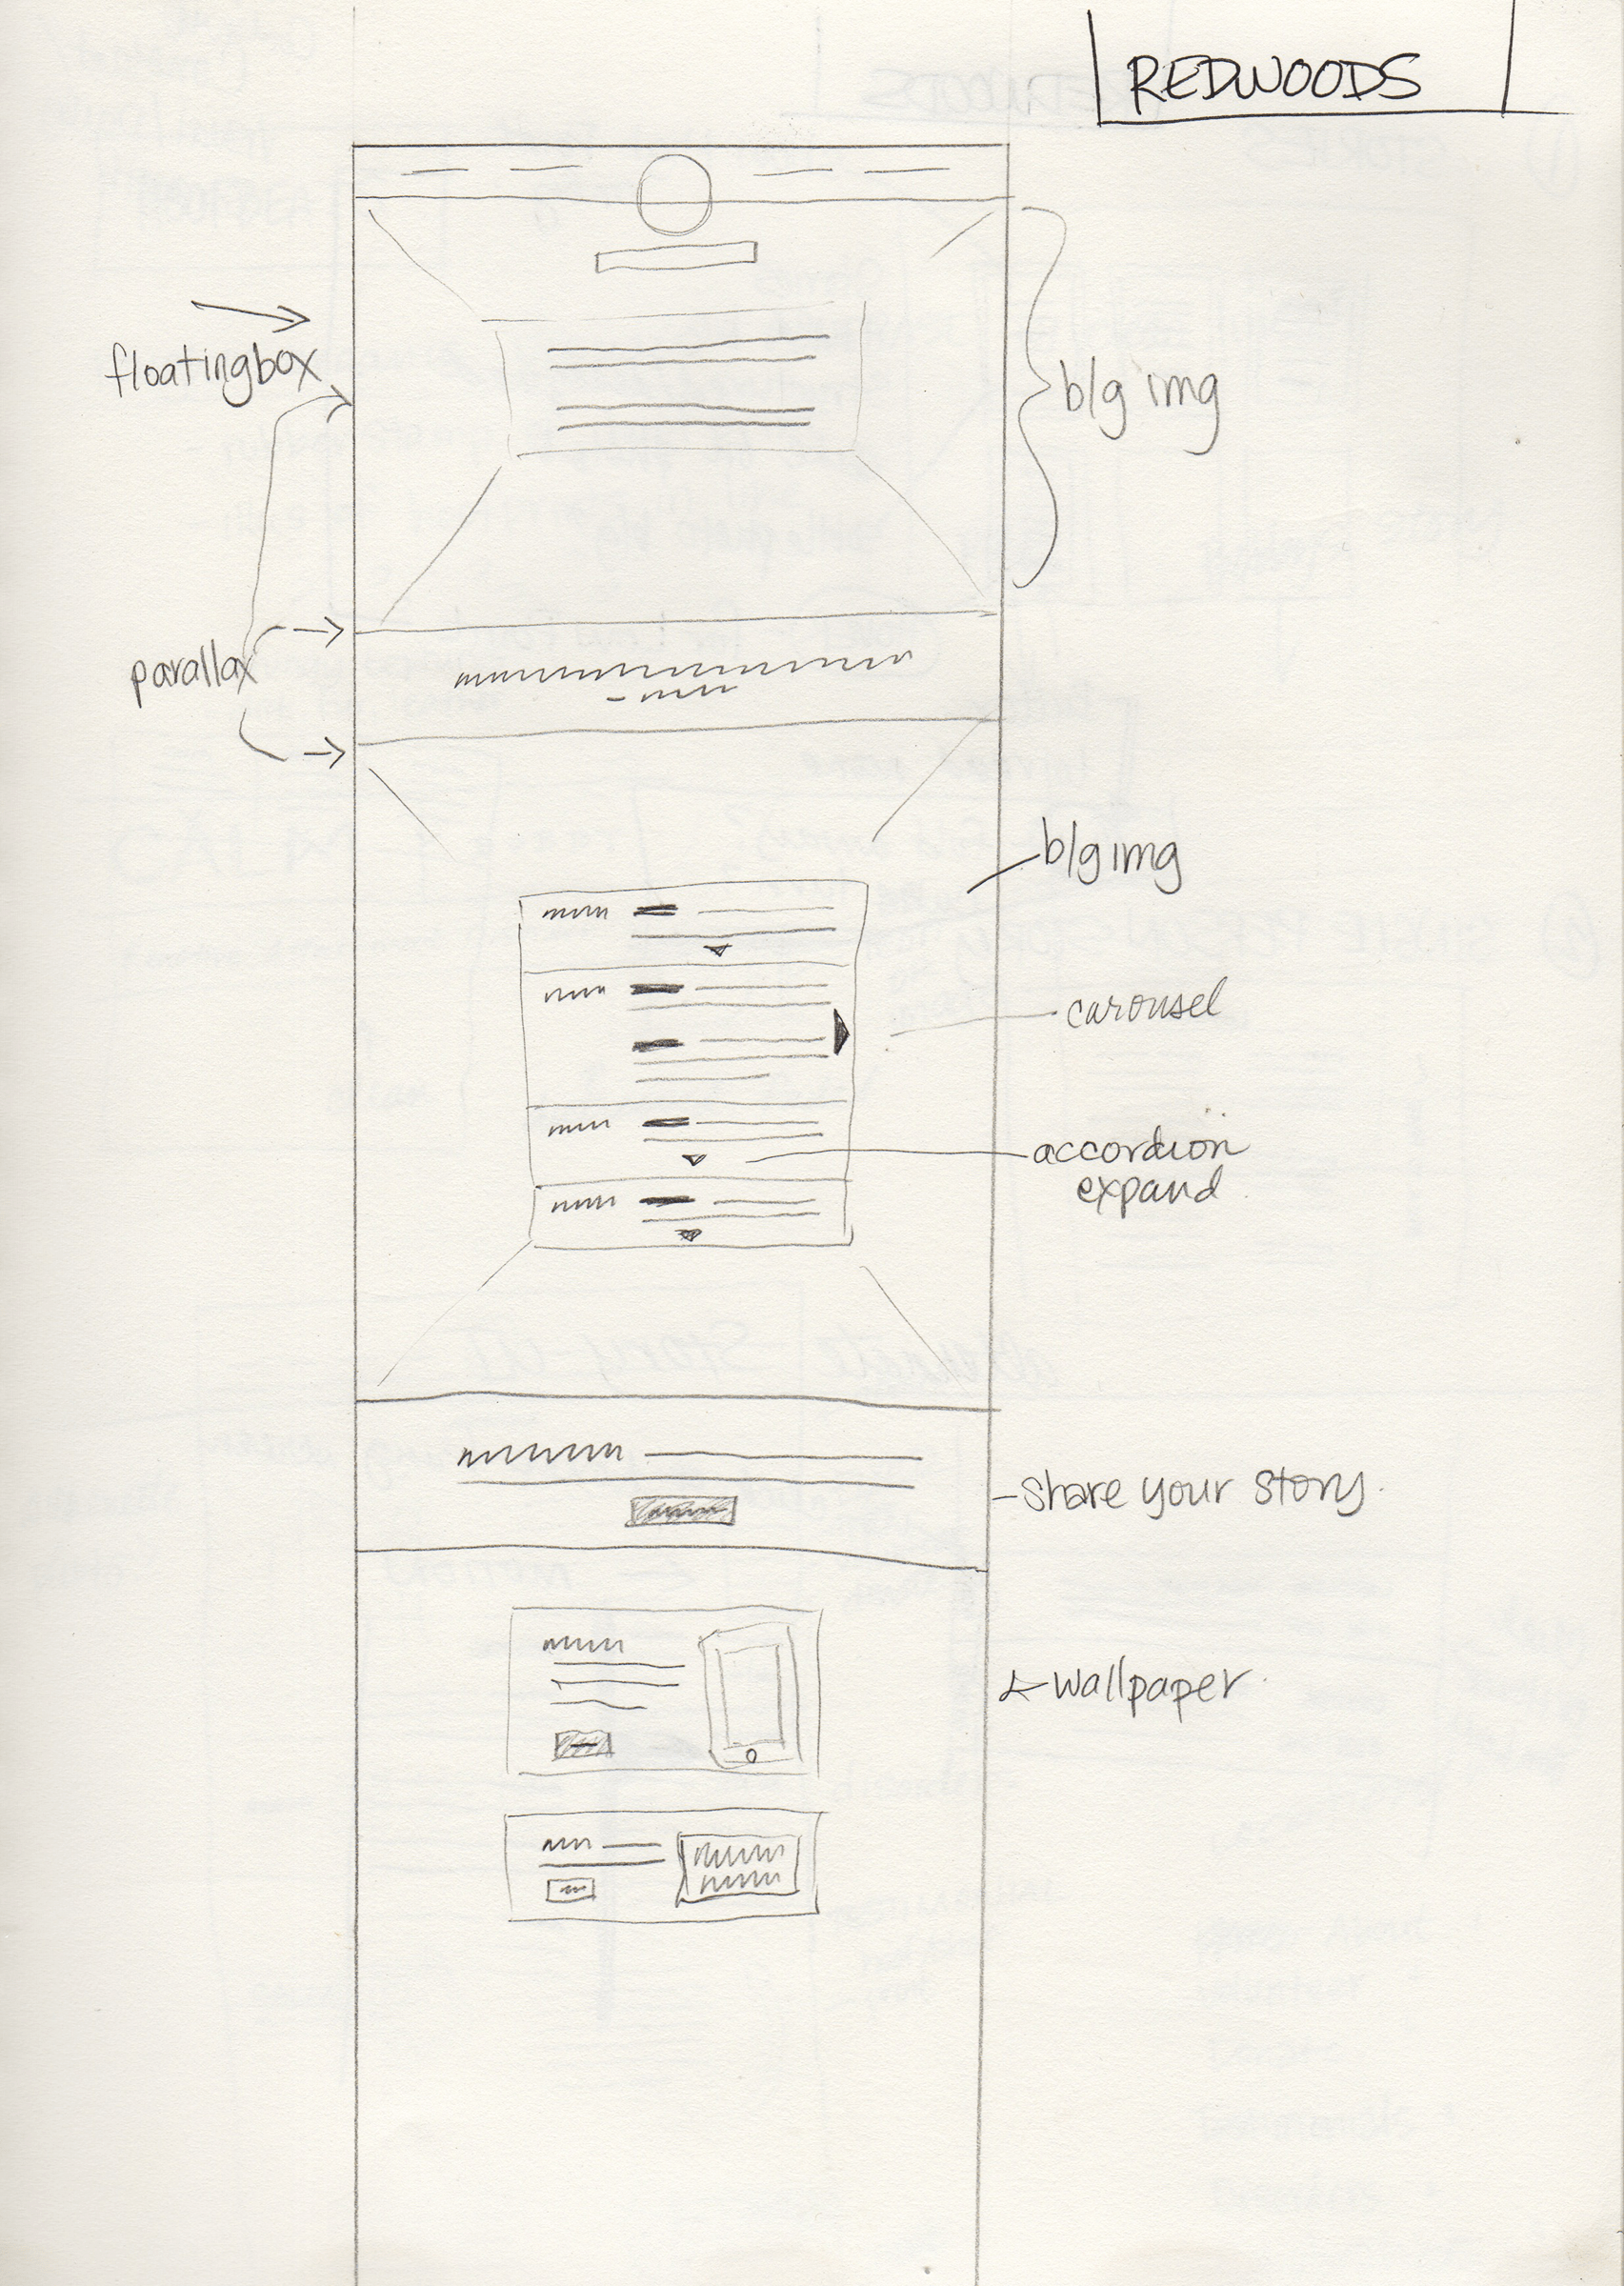 REDWOODS
floatingbox
b/g img
parallax
b/g img
carousel
accordion
expand
share your story.
wallpaper